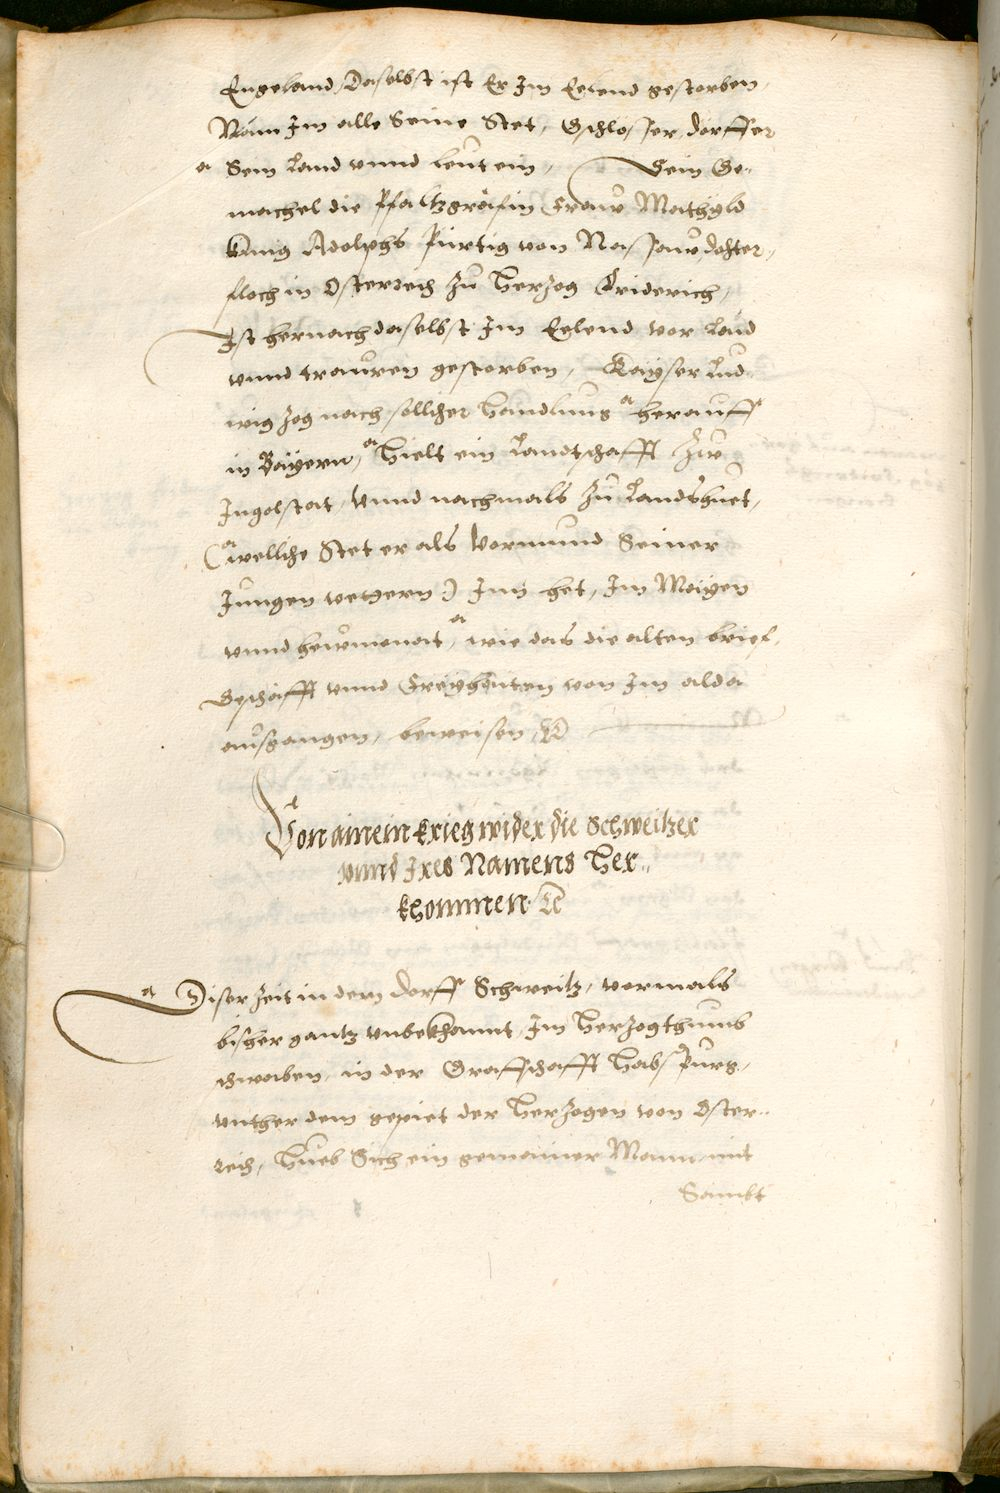 Engeland, Daselbst ist Er Im Eelend gestorben,
Nam Im alle Seine Stet, Gschlosser, dorffer
a Sein Land vnnd leut ein, Sein Ge-
machel die Pfaltzgräfin Fraw Mathyld
künig Adolphs Pürtig von Nassaw dochter,
floch in Osterreich zu Hertzog Friderich,
Ist hernach daselbst Im Eelend vor Laid
vnnd trauren gestorben, Kayser Lud-
wig zog nach sollicher Handlung a herauff
in Bayern, a Hielt ein Landtschafft Zu
Ingolstat, Vnnd nachmals Zu Landshuet,
(a welliche Stet er als Vormund Seiner
Jungen vettern) Inn het, Im Mayen
vnnd hewmonat, a wie das die alten brief,
Gschäfft vnnd Freyhaiten von Im alda
ausgangen, beweisen,
Von ainem krieg wider die Schweitzer
vnnd Ires Namens Her-
khommen
a Diser Zeit in dem Dorff Schweitz, vormals
bisher gantz vnbekhannt, Im Hertzogthumb
schwaben, in der Graffschafft Habspurg,
vnther dem gepiet der Hertzogen von Oster-
reich, Hueb Sich ein gemainer Mann mit
Sambt